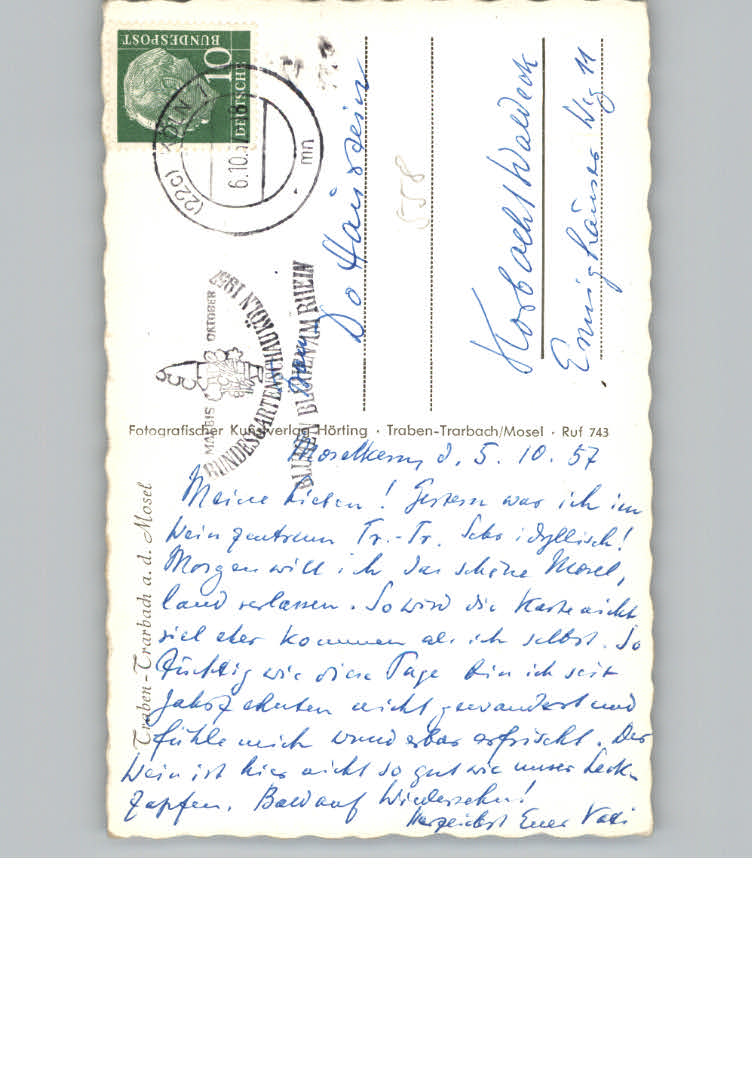 BUNDESPOST
10
DEUTSCHE
(22c) KÖLN 1
6.10.57
mn
MAI BIS OKTOBER
BUNDESGARTENSCHAU KÖLN 1957
BLUMEN BLÜHEN AM RHEIN
558
Korbach/Waldeck
Ennighäuser Weg 11
Fotografischer Kunstverlag Hörting · Traben-Trarbach/Mosel · Ruf 743
Traben-Trarbach a. d. Mosel
Moselkern, d. 5. 10. 57
Meine Lieben! Gestern war ich im
Weinzentrum Tr.-Tr. Sehr idyllisch!
Morgen will ich das schöne Mosel-
land verlassen. So wird die Karte nicht
viel eher kommen als ich selbst. So
tüchtig wie diese Tage bin ich seit
Jahrzehnten nicht gewandert und
fühle mich wunderbar erfrischt. Der
Wein ist hier nicht so gut wie unser Leck-
zapfen. Bald auf Wiedersehn!
Herzlichst Euer Vati